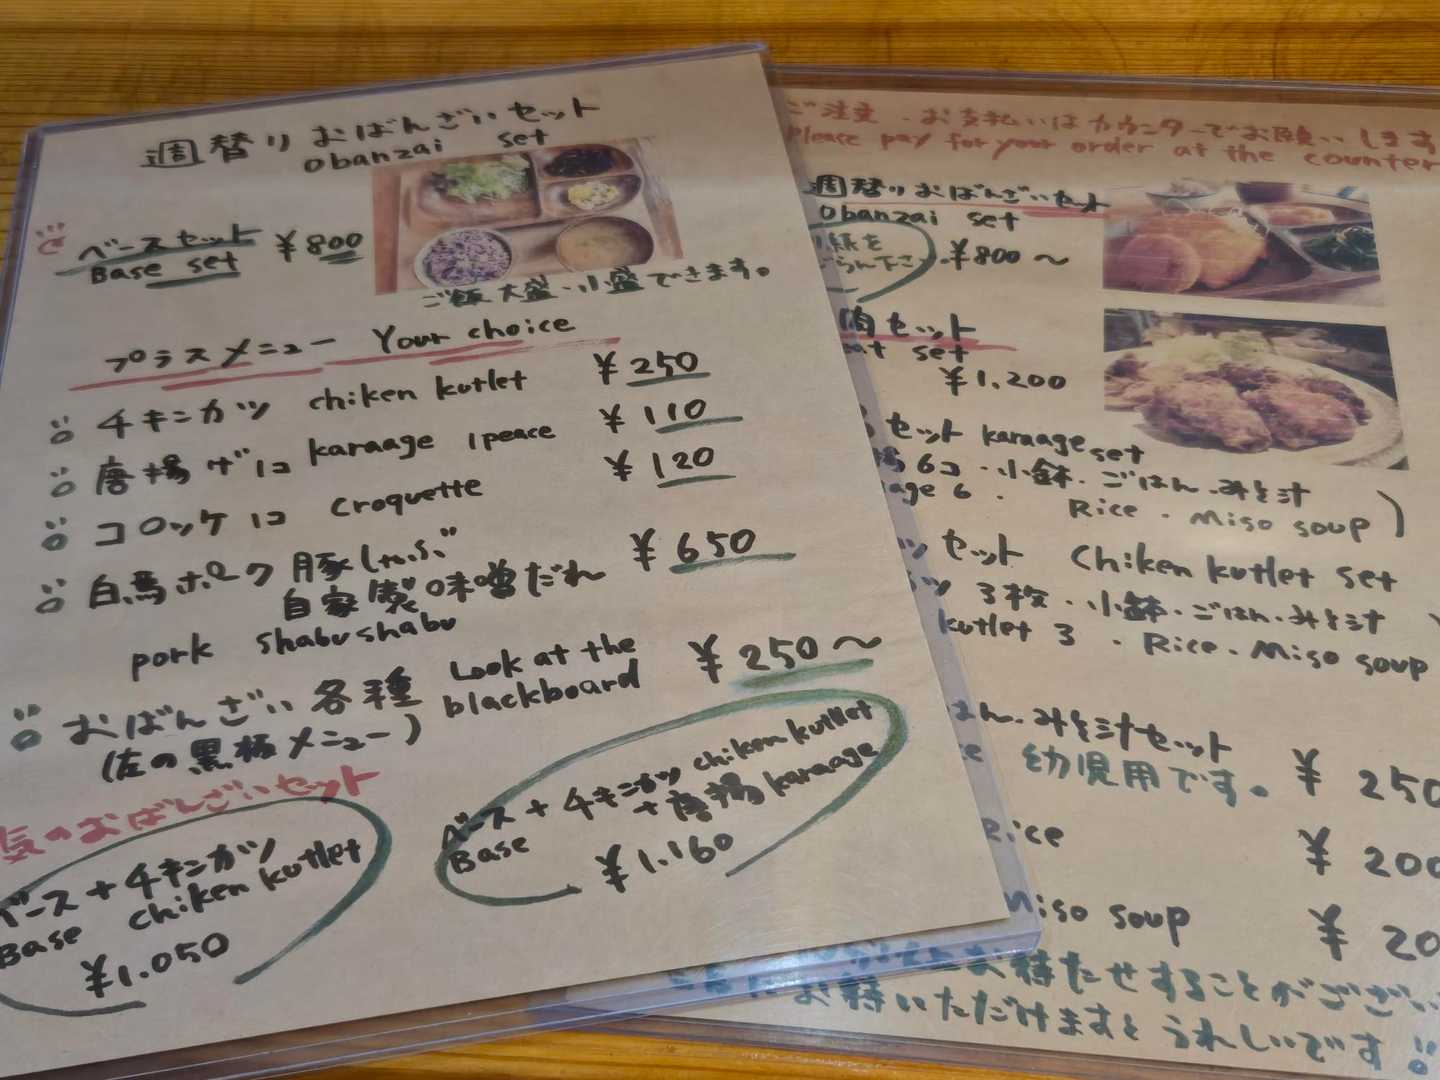 週替りおばんざいセット
Obanzai set
ベースセット ¥800
Base set
ご飯大盛・小盛できます。
プラスメニュー Your choice
チキンカツ chiken kutlet ¥250
唐揚げ1コ karaage 1peace ¥110
コロッケ1コ croquette ¥120
白馬ポーク豚しゃぶ ¥650
自家製味噌だれ
pork shabushabu
おばんざい各種 Look at the blackboard ¥250〜
(左の黒板メニュー)
気のおばんざいセット
ベース+チキンカツ
Base chiken kutlet
¥1.050
ベース+チキンカツ chiken kutlet
Base +唐揚 karaage
¥1.160
ご注意・お支払いはカウンターでお願いします
Please pay for your order at the counter
週替りおばんざいセット
Obanzai set
¥800〜
肉セット
set
¥1.200
セット karaage set
揚6コ・小鉢・ごはん・みそ汁)
age 6 ・ Rice・Miso soup
セット Chiken kutlet set
ツ 3枚・小鉢・ごはん・みそ汁
kutlet 3 ・Rice・Miso soup
はん・みそ汁セット
幼児用です。 ¥250
Rice ¥200
Miso soup ¥20
お待たせすることがござい
お待いただけますとうれしいです